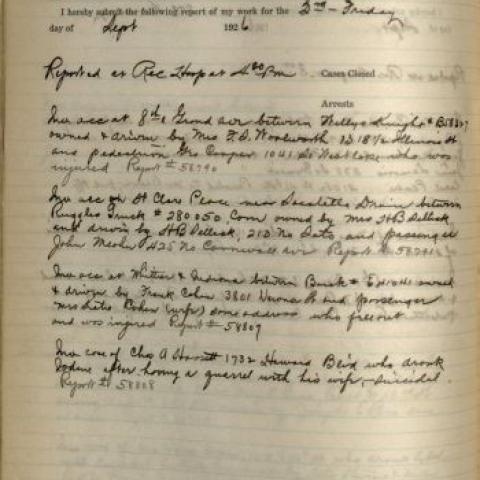 I hereby submit the following report of my work for the 3rd - Friday
day of Sept 1926
Reported at Rec Hosp at 4 00 Pm Cases Closed
Arrests
Inv acc at 8th & Grand ave between Willys Knight # B58307
owned & driven by Mrs F. D. Woolworth 1318½ Illinois st
and pedestrian Geo Cooper 1041 So Westlake who was
injured Report # 58790
Inv acc on St Clair Place near Drain between
Ruggles Truck # 280050 Com owned by Mrs H B
and driven by H B 210 No Soto and passenger
John 425 No Cornwell ave Report # 58791
Inv acc at Whittier & Indiana between Buick # owned
& driven by Frank Cohn 3801 and passenger
Mrs Cohn (wife) same address who fell out
and was injured Report # 58807
Inv case of Chas A 1732 Howard Blvd who drank
Iodine after having a quarrel with his wife - suicidal.
Report # 58808